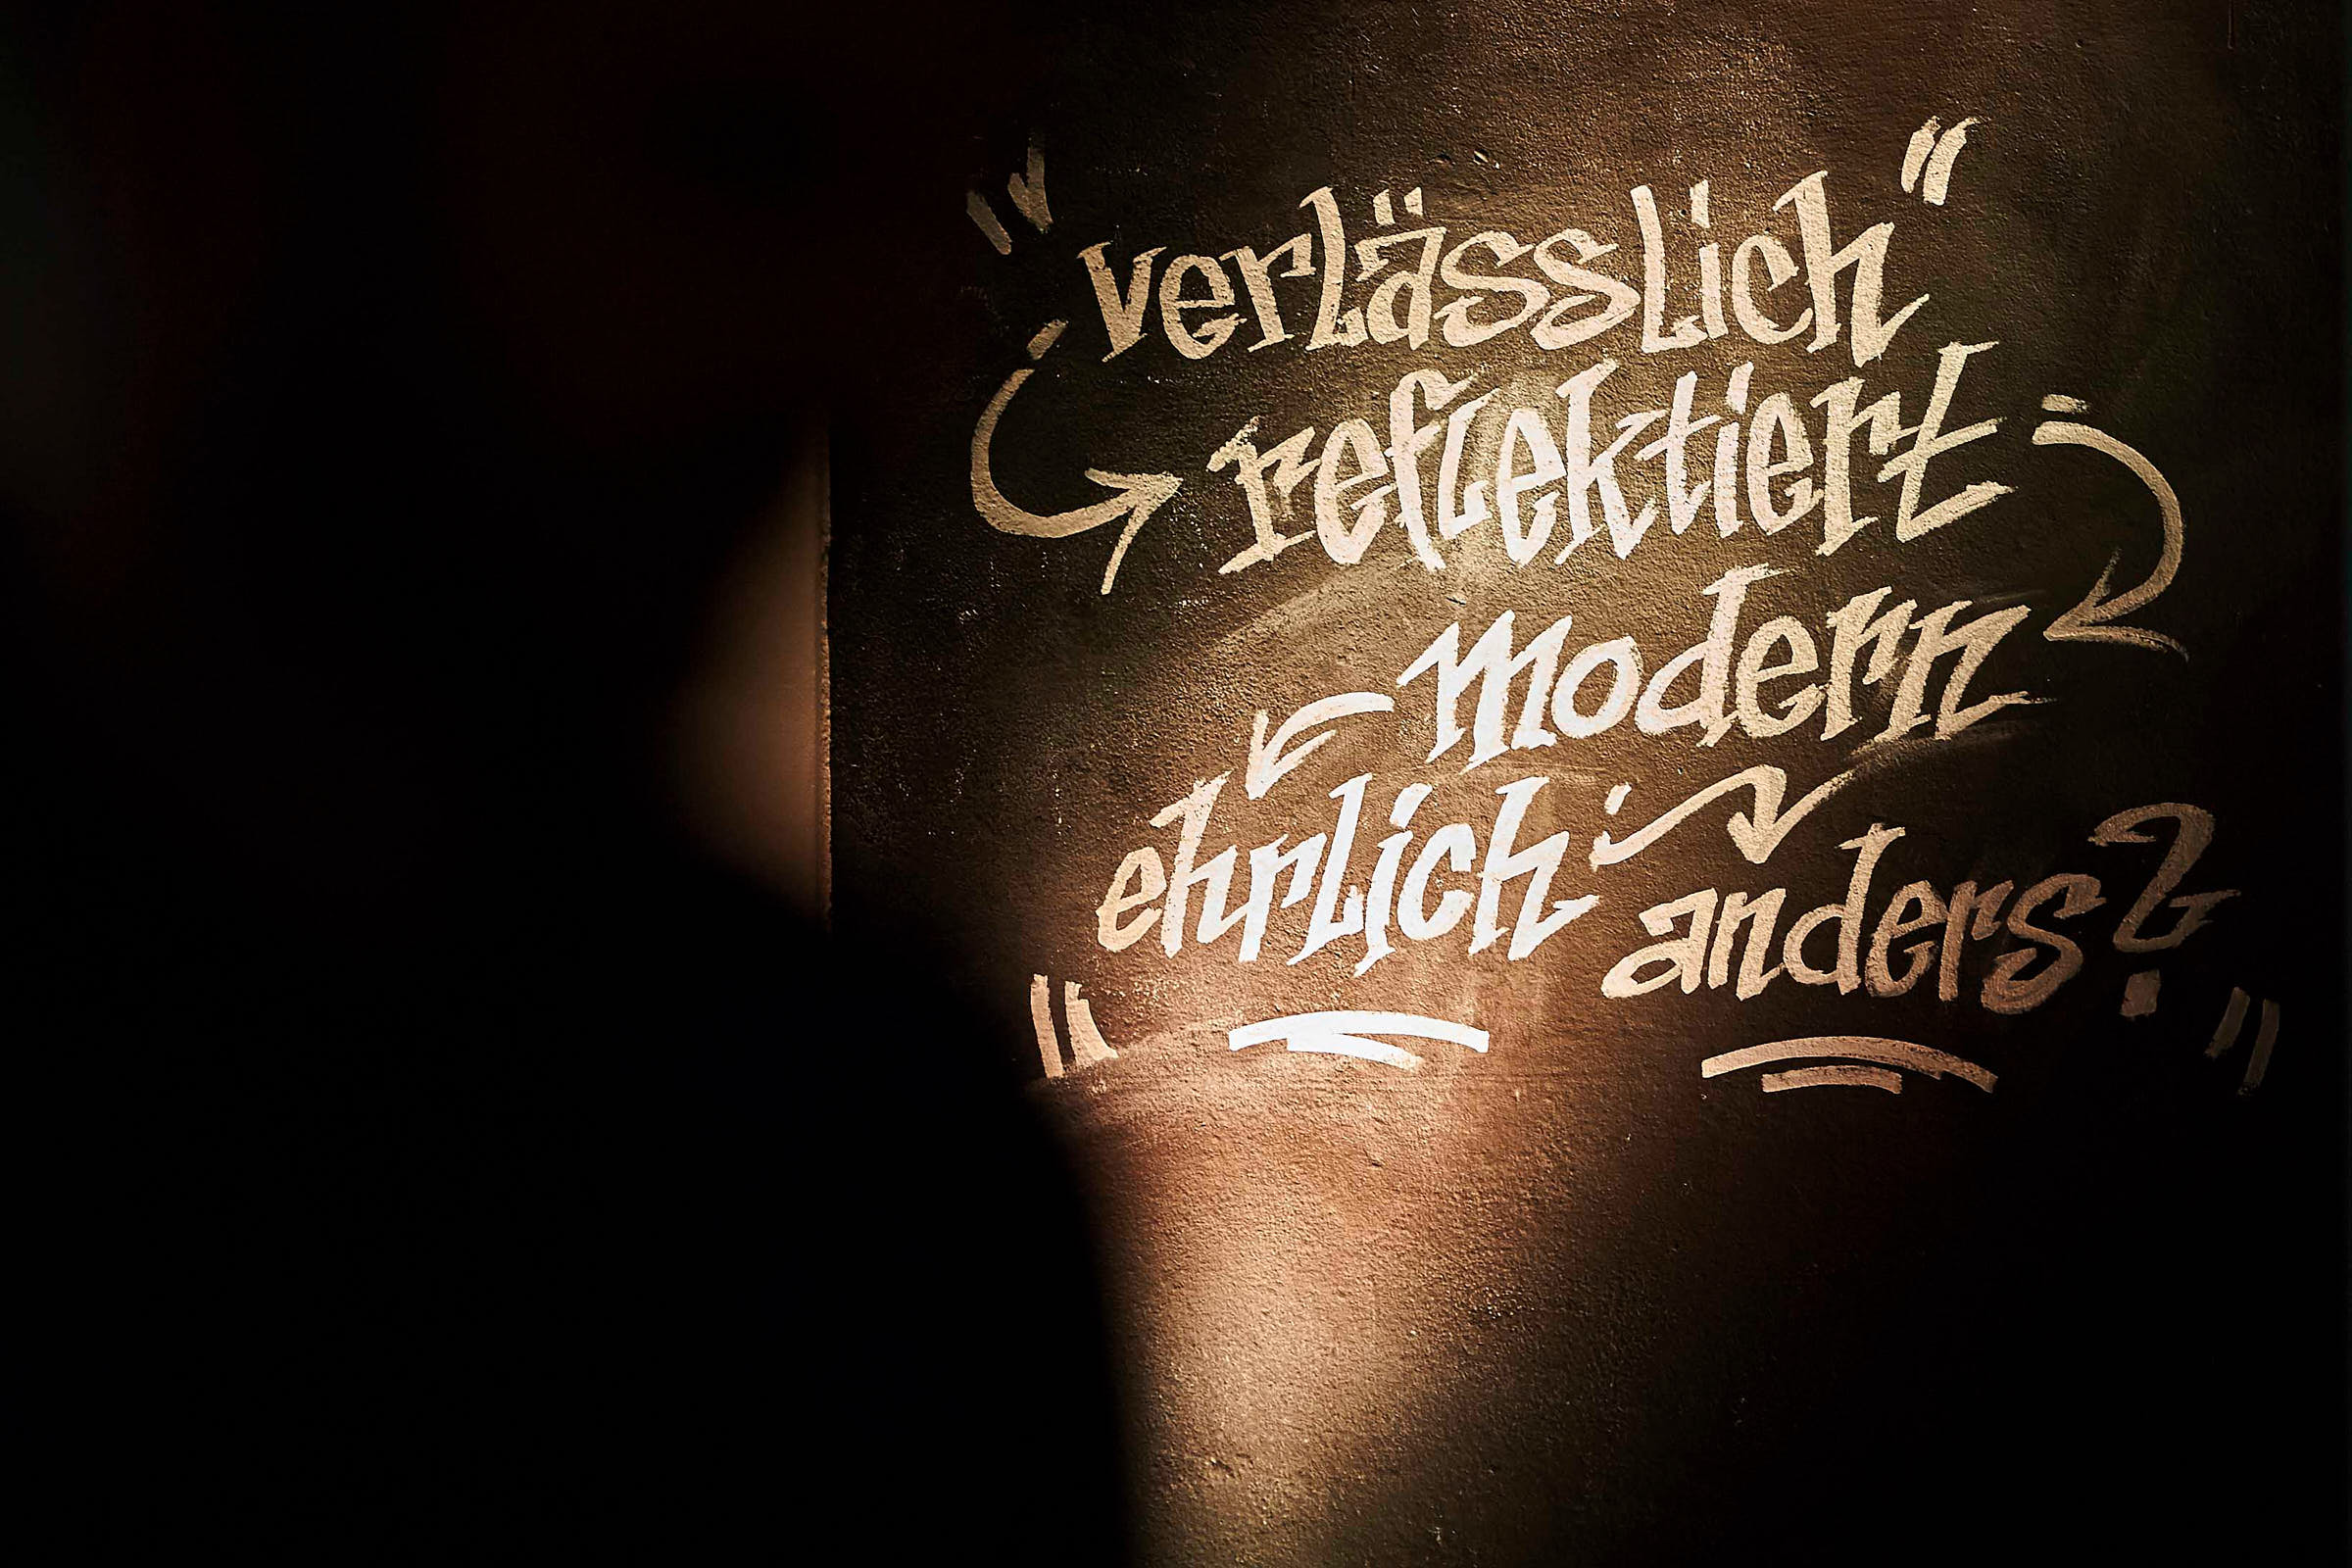 "verlässlich"
reflektiert
modern
ehrlich
anders?